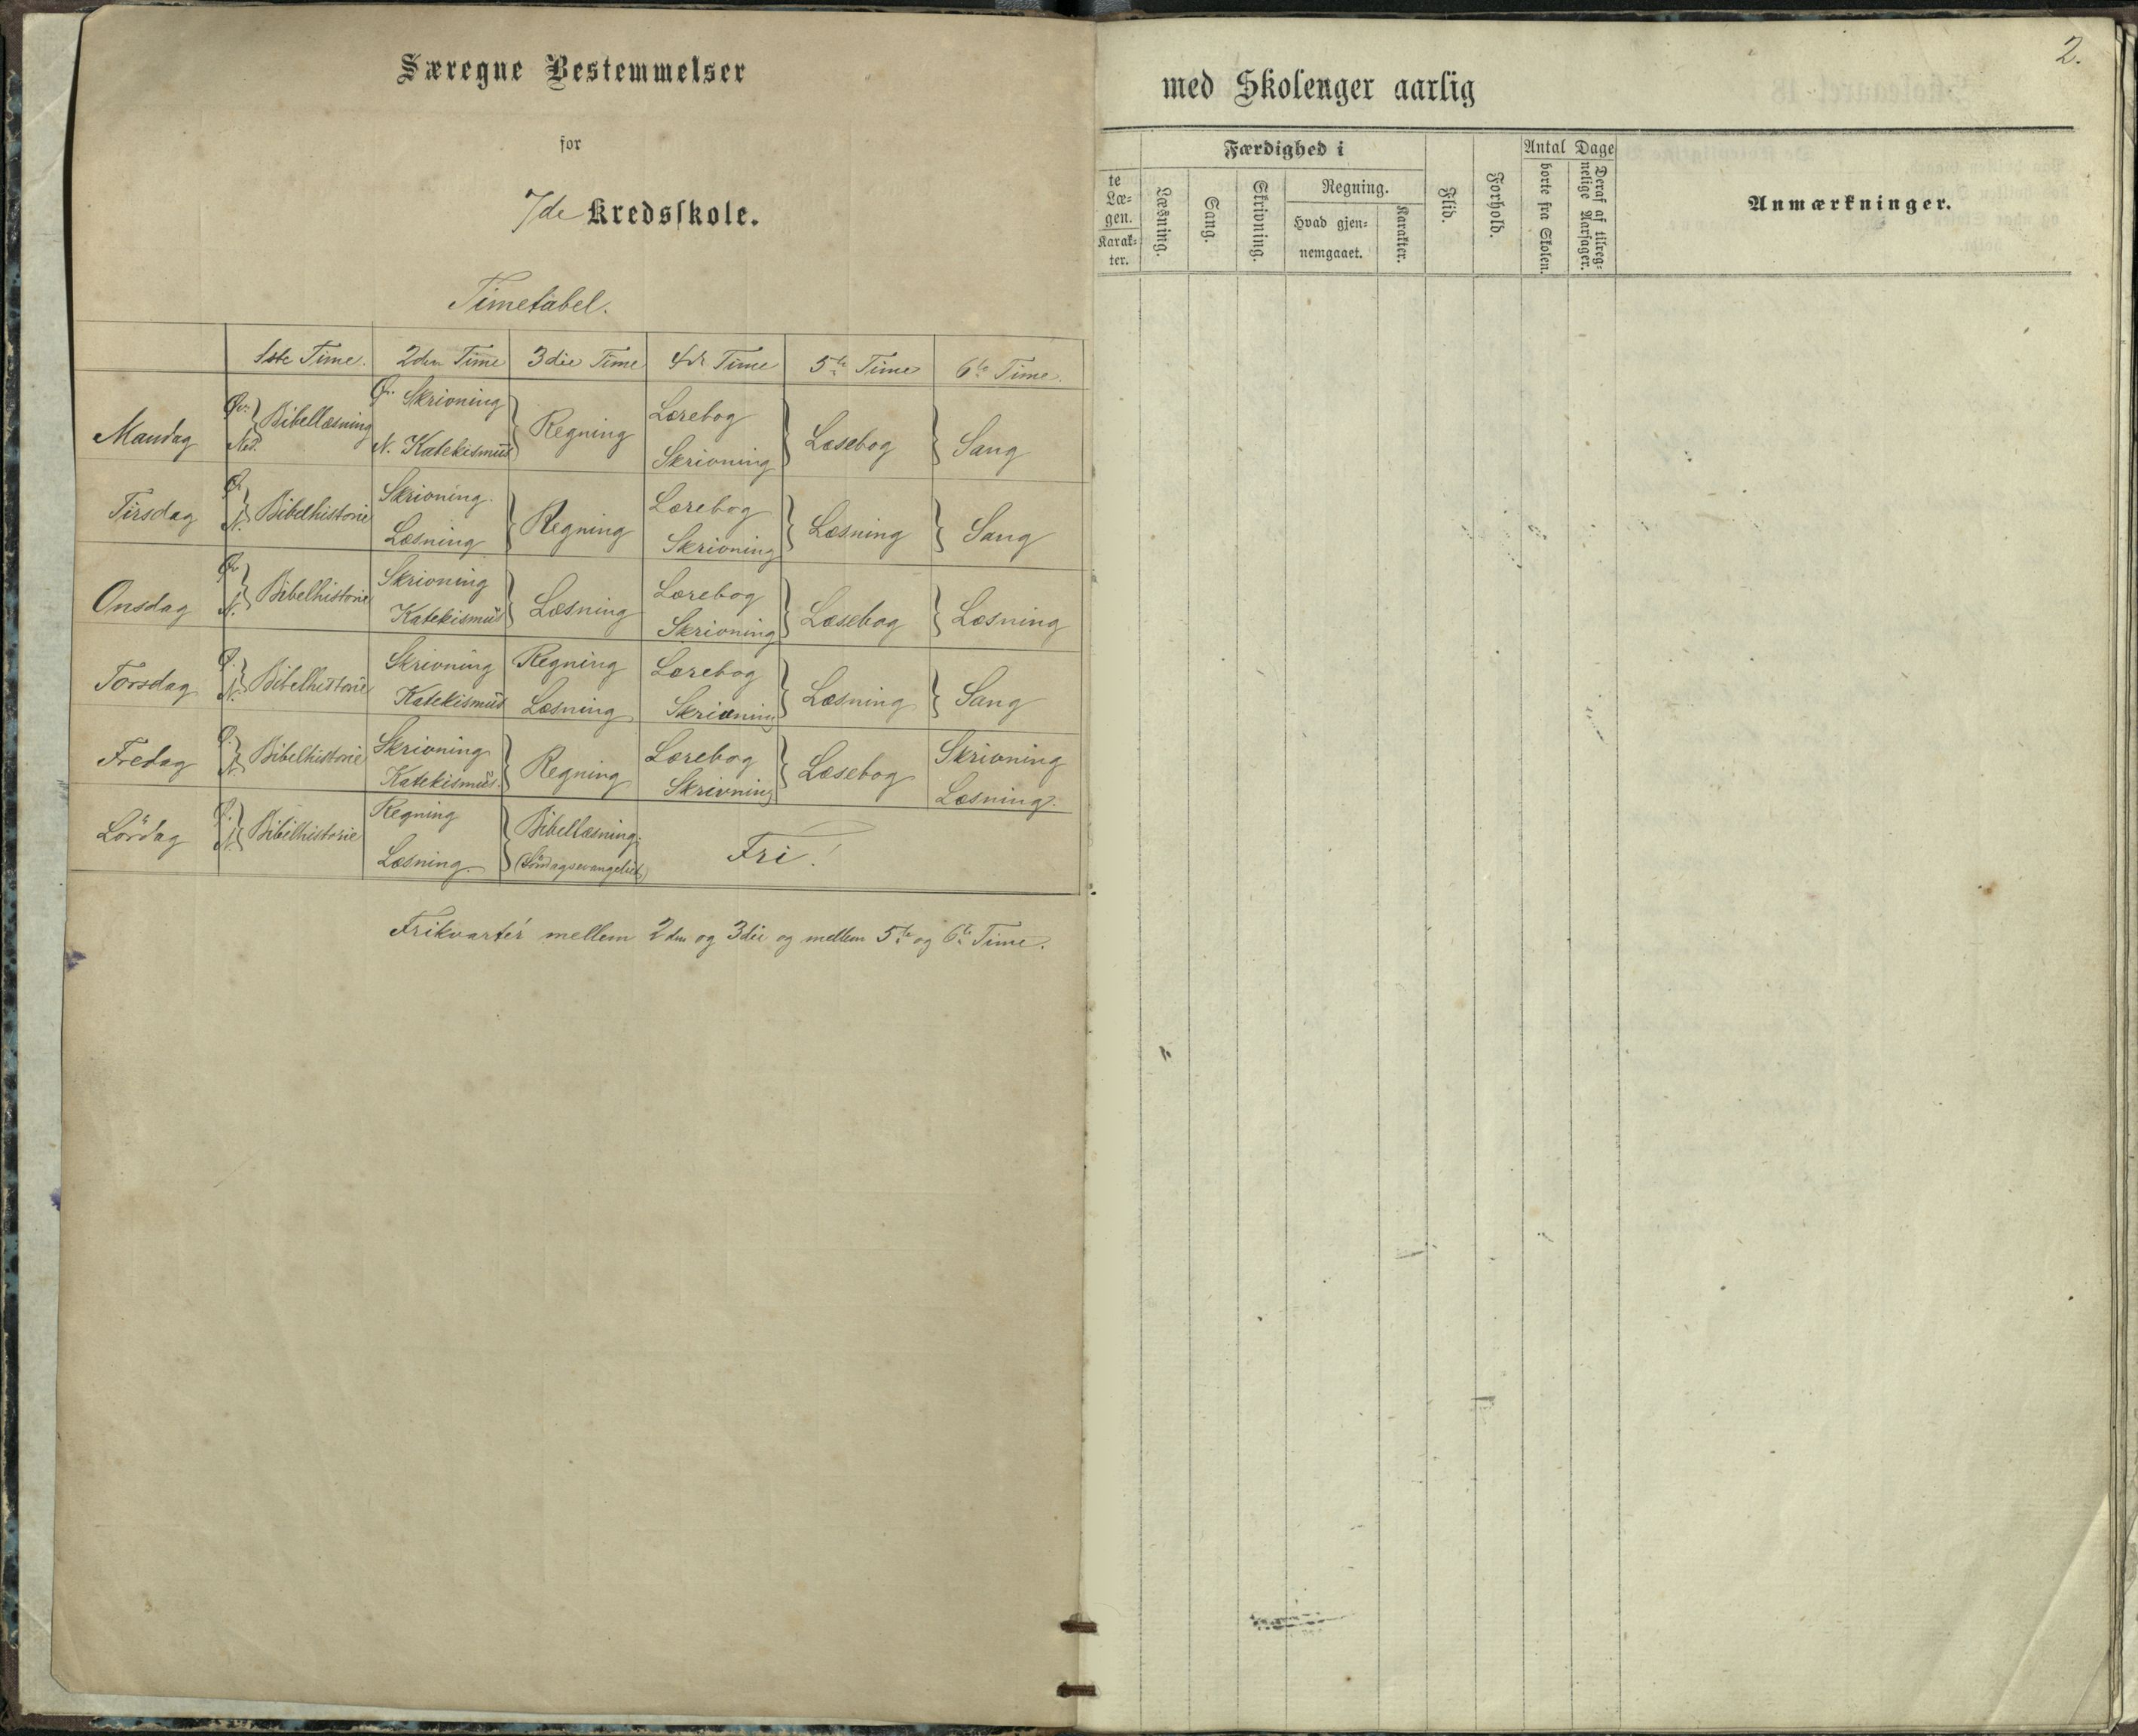 Særegne Bestemmelser
for
7de Kredsskole.
Timetabel.
1ste Time. 2den Time 3die Time 4de Time 5te Time 6te Time.
Mandag Øv. Ned. } Bibellæsning Ø. Skrivning N. Katekismus } Regning Lærebog Skrivning } Læsebog } Sang
Tirsdag Ø. N. } Bibelhistorie Skrivning. Læsning } Regning Lærebog Skrivning } Læsning } Sang
Onsdag Ø. N. } Bibelhistorie Skrivning Katekismus } Læsning Lærebog Skrivning } Læsebog } Læsning
Torsdag Ø. N. } Bibelhistorie Skrivning Katekismus Regning Læsning Lærebog Skrivning } Læsning } Sang
Fredag Ø. N. } Bibelhistorie Skrivning Katekismus. } Regning Lærebog Skrivning } Læsebog Skrivning Læsning.
Lørdag Ø. N. } Bibelhistorie Regning Læsning. } Bibellæsning. (Søndagsevangeliet) Fri!
Frikvartér mellem 2den og 3die og mellem 5te og 6te Time.
2.
med Skolenger aarlig
te Læ-
gen.
Karak-
ter.
Færdighed i
Læsning.
Sang.
Skrivning.
Regning.
Hvad gjen-
nemgaaet.
Karakter.
Flid.
Forhold.
Antal Dage
borte fra Skolen.
Deraf af tilreg-
nelige Aarsager.
Anmærkninger.